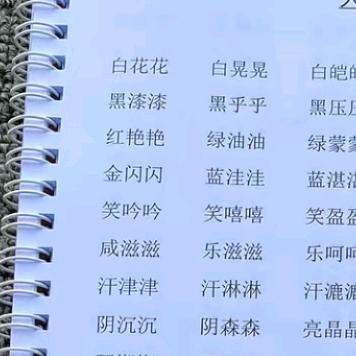 白花花 白晃晃 白皑
黑漆漆 黑乎乎 黑压
红艳艳 绿油油 绿蒙
金闪闪 蓝洼洼 蓝湛
笑吟吟 笑嘻嘻 笑盈盈
咸滋滋 乐滋滋 乐呵呵
汗津津 汗淋淋 汗漉漉
阴沉沉 阴森森 亮晶晶